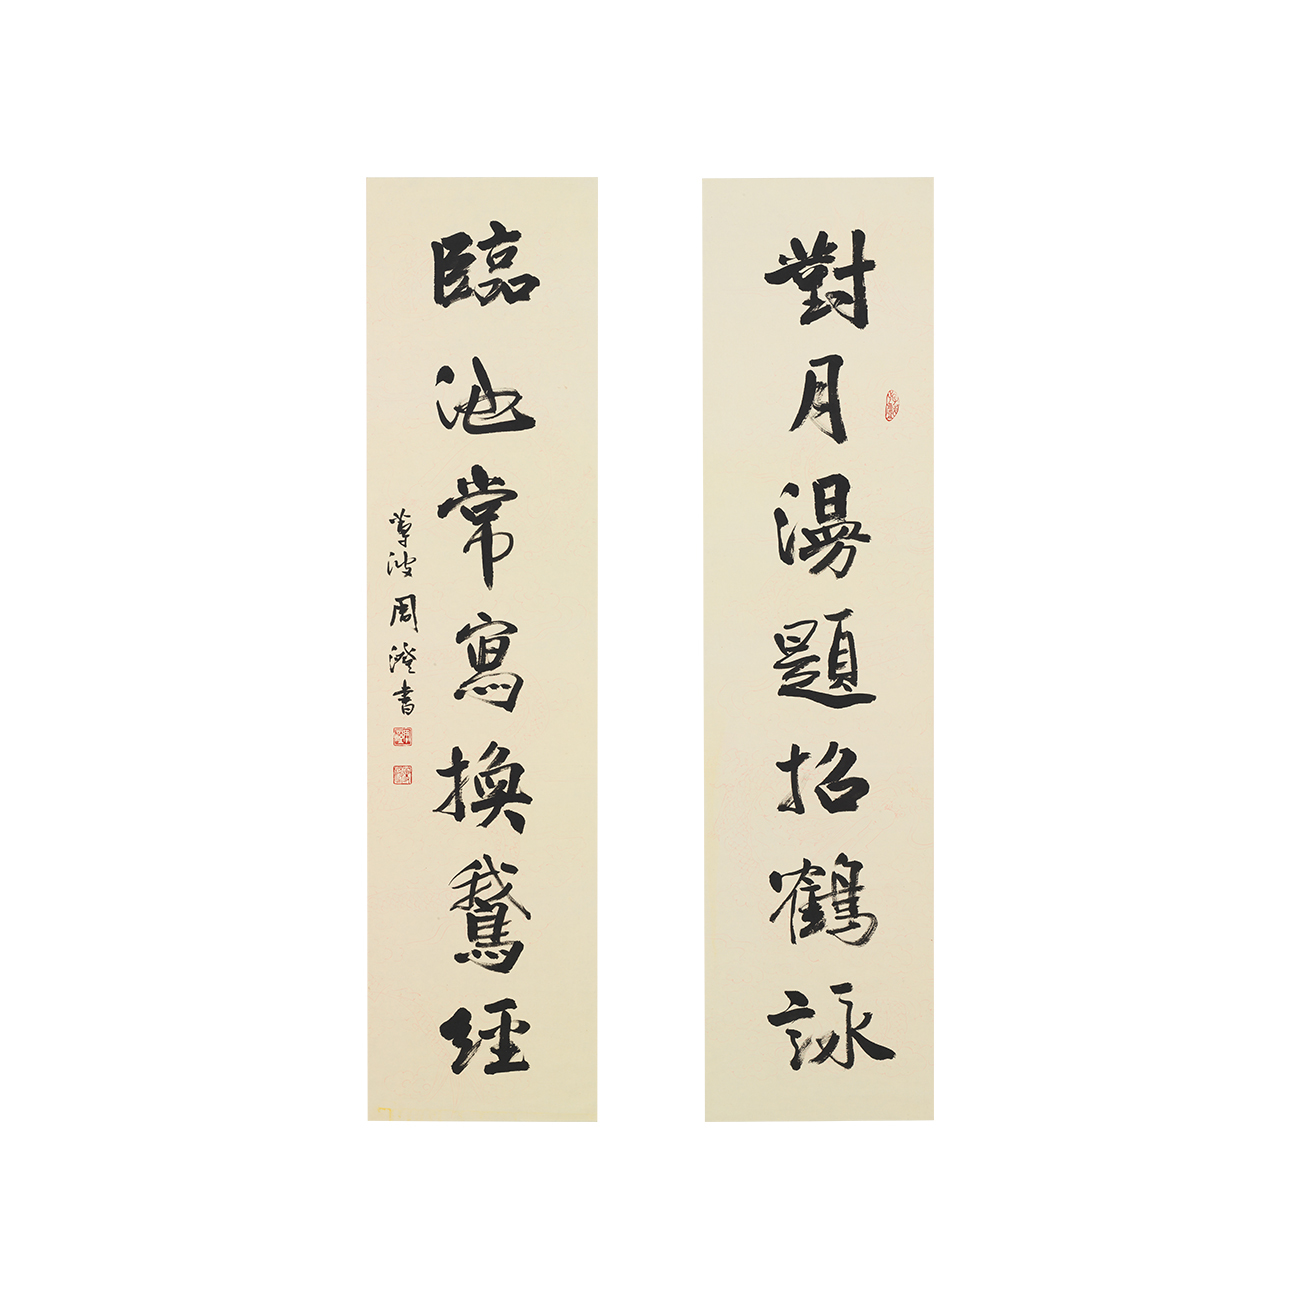 對月漫題招鶴詠
臨池常寫換鵞經
蓴波周澄書